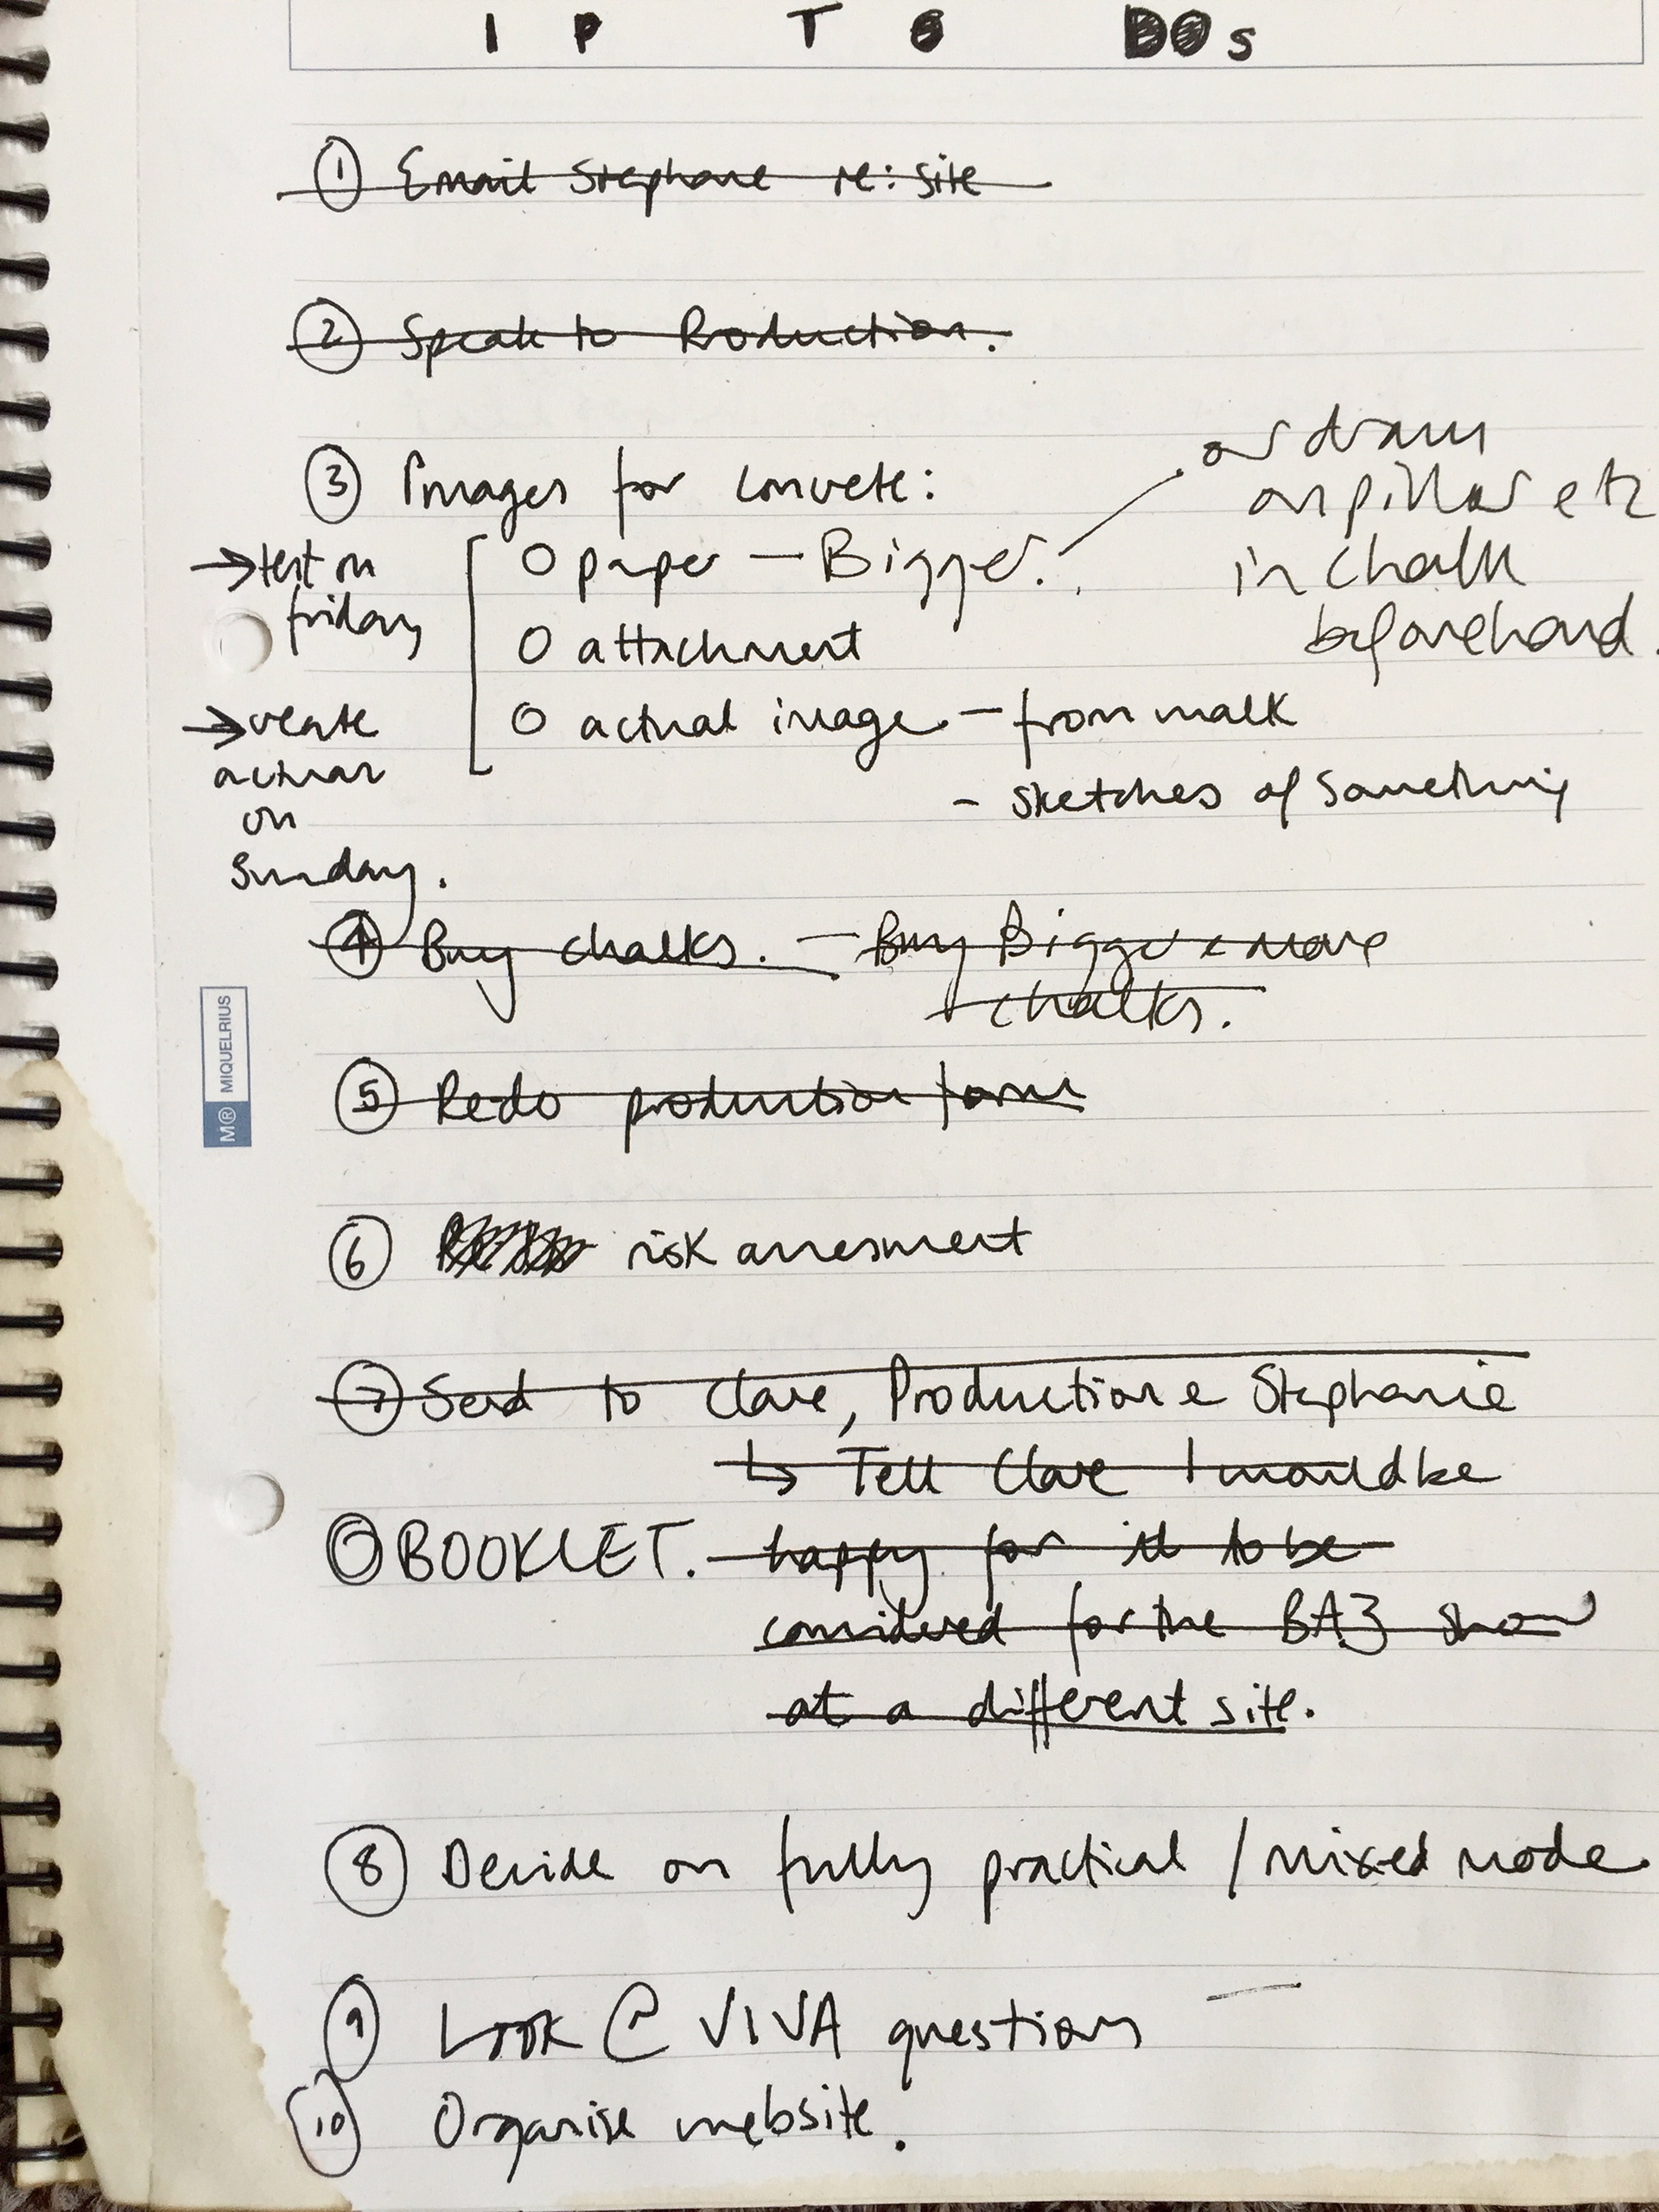 IP TO DOs
① Email Stephanie re: site
② Speak to Production.
③ Images for concrete:
or draw
on pillar etc
in chalk
beforehand.
→ test on
friday
O paper — Bigger.
O attachment
O actual image — from walk
- sketches of something
→ create
actual
on
Sunday.
④ Buy chalks. — Buy Bigger & more
chalks.
⑤ Redo production form
⑥ risk assesment
⑦ Send to Clare, Production & Stephanie
↳ Tell Clare I would be
O BOOKLET. happy for it to be
considered for the BA3 show
at a different site.
⑧ Decide on fully practical / mixed mode
⑨ Look @ VIVA questions
⑩ Organise website.
M® MIQUELRIUS